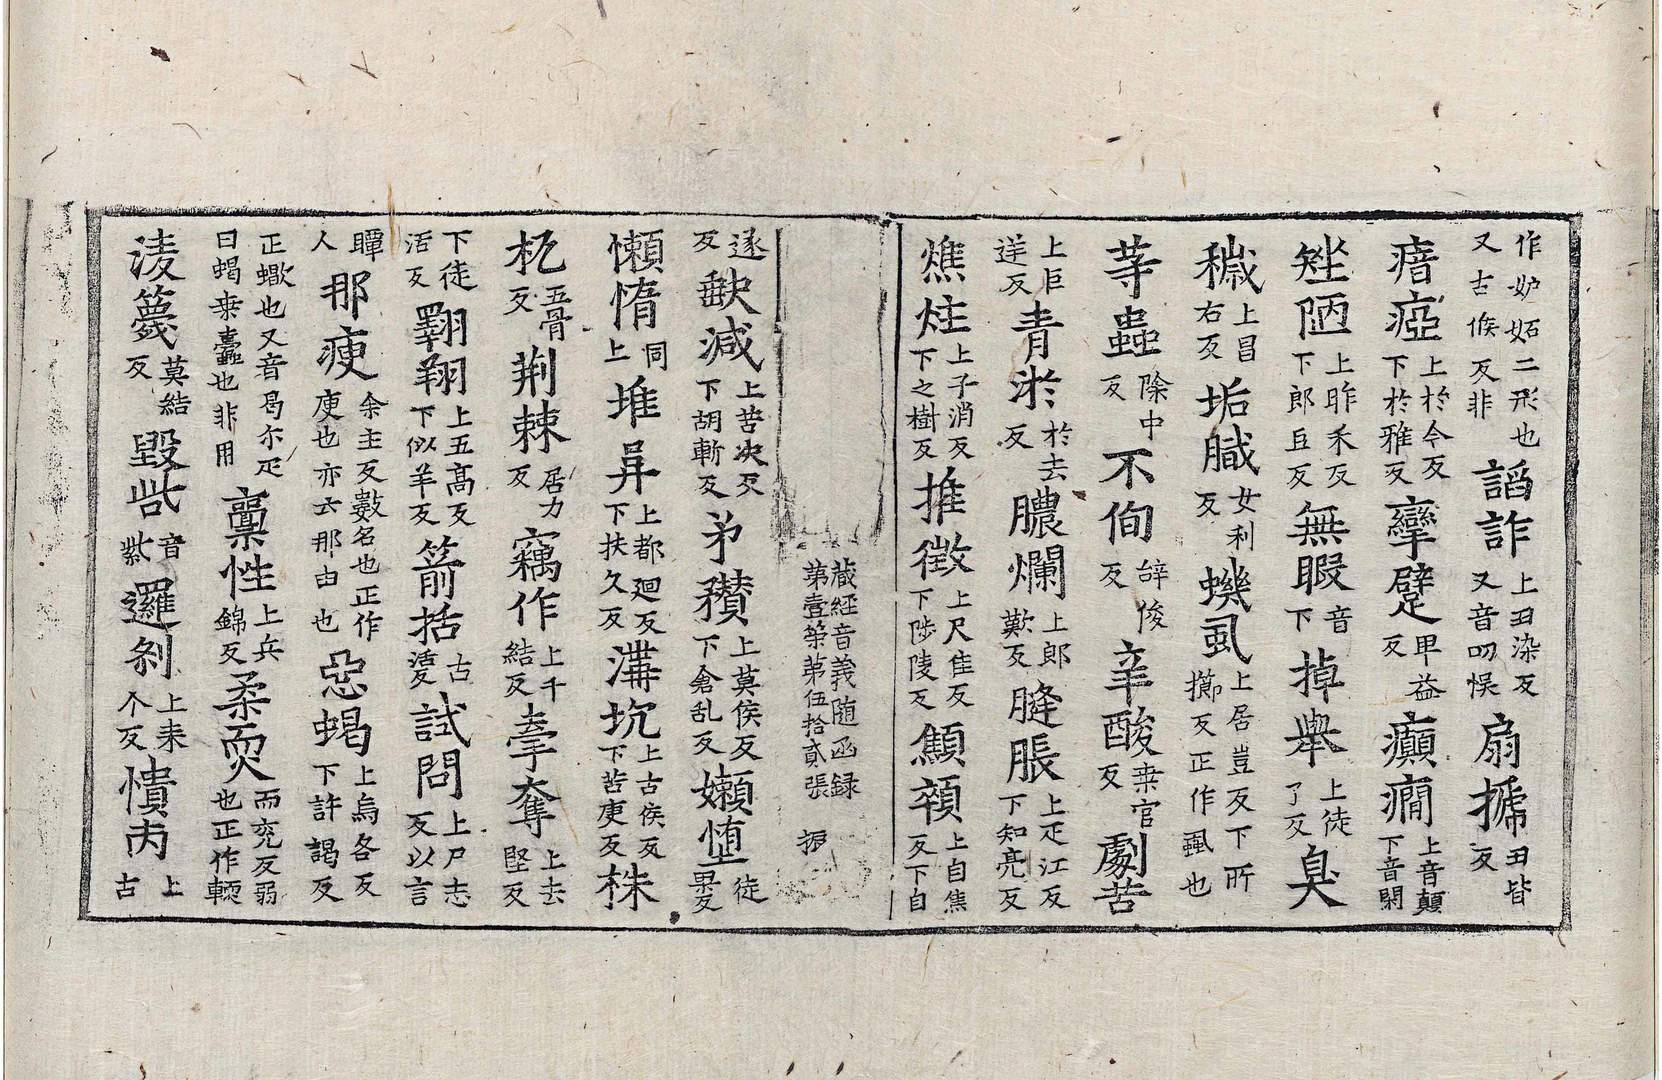 作妒妬二形也又古候反非謟詐上丑染反又音叨悮扇搋丑皆反
瘖瘂上於今反下於雅反攣躄甲益反癲癇上音顛下音閑
矬陋上昨禾反下郎豆反無睱音下掉舉上徒了反臭
穢上昌右反垢膱女利反蟣虱上居豈反下所擳反正作蝨也
䓁蟲除中反不徇辝俊反辛酸桒官反劇苦
上巨𨒫反青淤於去反膿爛上郎歎反膖脹上疋江反下知亮反
燋炷上子消反下之樹反推徵上尺隹反下陟陵反顦顇上自焦反下自
藏經音義随函録第壹第伍拾貳張 振
遂反缺減上苦决反下胡斬反矛穳上莫侯反下倉乱反嬾惰徒果反
懶惰同上堆阜上都迴反下扶久反溝坑上古侯反下苦庚反株
杌五骨反荆棘居力反竊作上千結反牽奪上去堅反
下徒活反翺翔上五高反下似羊反箭括古活反試問上尸志反以言
瞫人那庾余主反數名也正作庾也亦云那由也惡蝎上烏各反下許謁反
正蠍也又音曷尒疋曰蝎桒蠹也非用稾性上兵錦反柔耎而兖反弱也正作輭
淩篾莫結反毀呰音紫邏剎上来个反憒丙上古